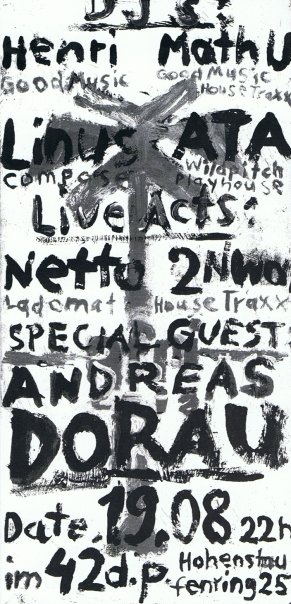 DJ's:
Henri MathU
GoodMusic GoodMusic
HouseTraxx
Linus ATA
compose Wildpitch
Playhouse
Live Acts:
Netto 2Nwo
Ladomat HouseTraxx
SPECIAL GUEST:
ANDREAS
DORAU
Date. 19.08 22h
im 42d.p. Hohenstau
fenring 25